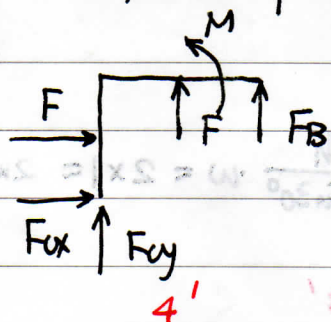 M
F
F
FB
Fcx
Fcy
4'